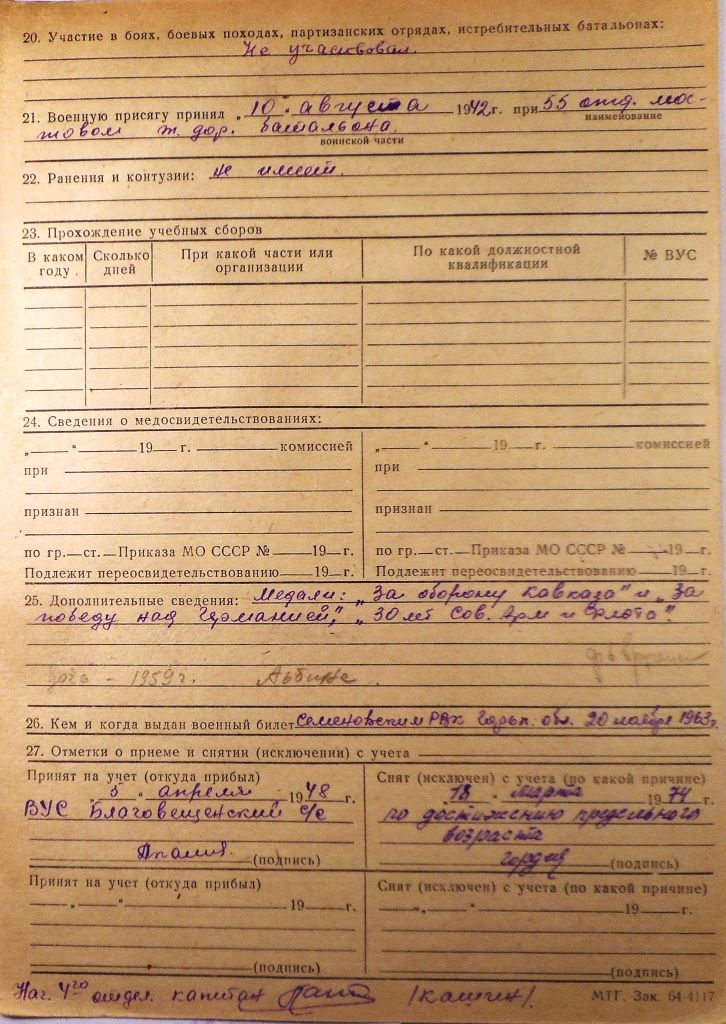 20. Участие в боях, боевых походах, партизанских отрядах, истребительных батальонах:
Не участвовал.
21. Военную присягу принял „10" августа 1942 г. при 55 отд. мос-
наименование
товом ж. дор. батальона.
воинской части
22. Ранения и контузии: не имеет.
23. Прохождение учебных сборов
В каком году Сколько дней При какой части или организации По какой должностной квалификации № ВУС
24. Сведения о медосвидетельствованиях:
„ " 19 г. комиссией
при
признан
по гр. ст. Приказа МО СССР № 19 г.
Подлежит переосвидетельствованию 19 г.
„ " 19 г. комиссией
при
признан
по гр. ст. Приказа МО СССР № 19 г.
Подлежит переосвидетельствованию 19 г.
25. Дополнительные сведения: Медали: „За оборону Кавказа" и „За
победу над Германией", „30 лет Сов. Арм и Флота".
дочь - 1959 г. Альбина
26. Кем и когда выдан военный билет Семеновским РВК Горьк. обл. 20 ноября 1963 г.
27. Отметки о приеме и снятии (исключении) с учета
Принят на учет (откуда прибыл)
„5" апреля 1948 г.
ВУС Благовещенский с/с
(подпись)
Снят (исключен) с учета (по какой причине)
„18" марта 1974 г.
по достижению предельного
возраста
(подпись)
Принят на учет (откуда прибыл)
„ " 19 г.
(подпись)
Снят (исключен) с учета (по какой причине)
„ " 19 г.
(подпись)
Нач. 4го отдел. капитан /Кашин/.
МТГ. Зак. 64-4117